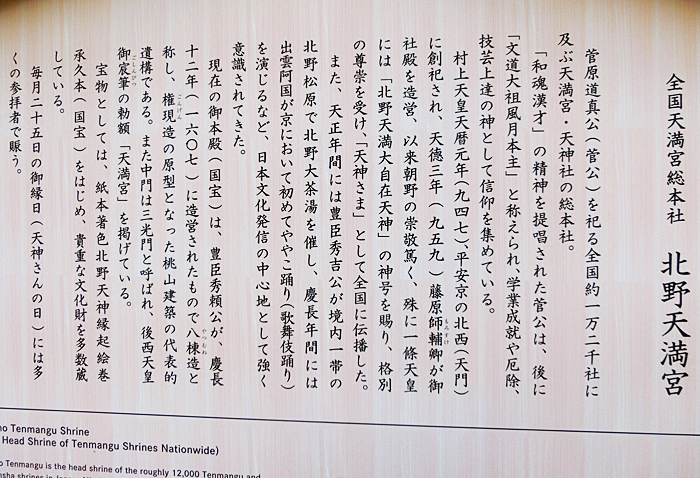 全国天満宮総本社 北野天満宮
菅原道真公(菅公)を祀る全国約一万二千社に
及ぶ天満宮・天神社の総本社。
「和魂漢才」の精神を提唱された菅公は、後に
「文道大祖風月本主」と称えられ、学業成就や厄除、
技芸上達の神として信仰を集めている。
村上天皇天暦元年(九四七)、平安京の北西(天門)
に創祀され、天徳三年(九五九)藤原師輔卿が御
社殿を造営、以来朝野の崇敬篤く、殊に一條天皇
には「北野天満大自在天神」の神号を賜り、格別
の尊崇を受け、「天神さま」として全国に伝播した。
また、天正年間には豊臣秀吉公が境内一帯の
北野松原で北野大茶湯を催し、慶長年間には
出雲阿国が京において初めてややこ踊り(歌舞伎踊り)
を演じるなど、日本文化発信の中心地として強く
意識されてきた。
現在の御本殿(国宝)は、豊臣秀頼公が、慶長
十二年(一六〇七)に造営されたもので八棟造と
称し、権現造の原型となった桃山建築の代表的
遺構である。また中門は三光門と呼ばれ、後西天皇
御宸筆の勅額「天満宮」を掲げている。
宝物としては、紙本著色北野天神縁起絵巻
承久本(国宝)をはじめ、貴重な文化財を多数蔵
している。
毎月二十五日の御縁日(天神さんの日)には多
くの参拝者で賑う。
no Tenmangu Shrine
Head Shrine of Tenmangu Shrines Nationwide)
o Tenmangu is the head shrine of the roughly 12,000 Tenmangu and